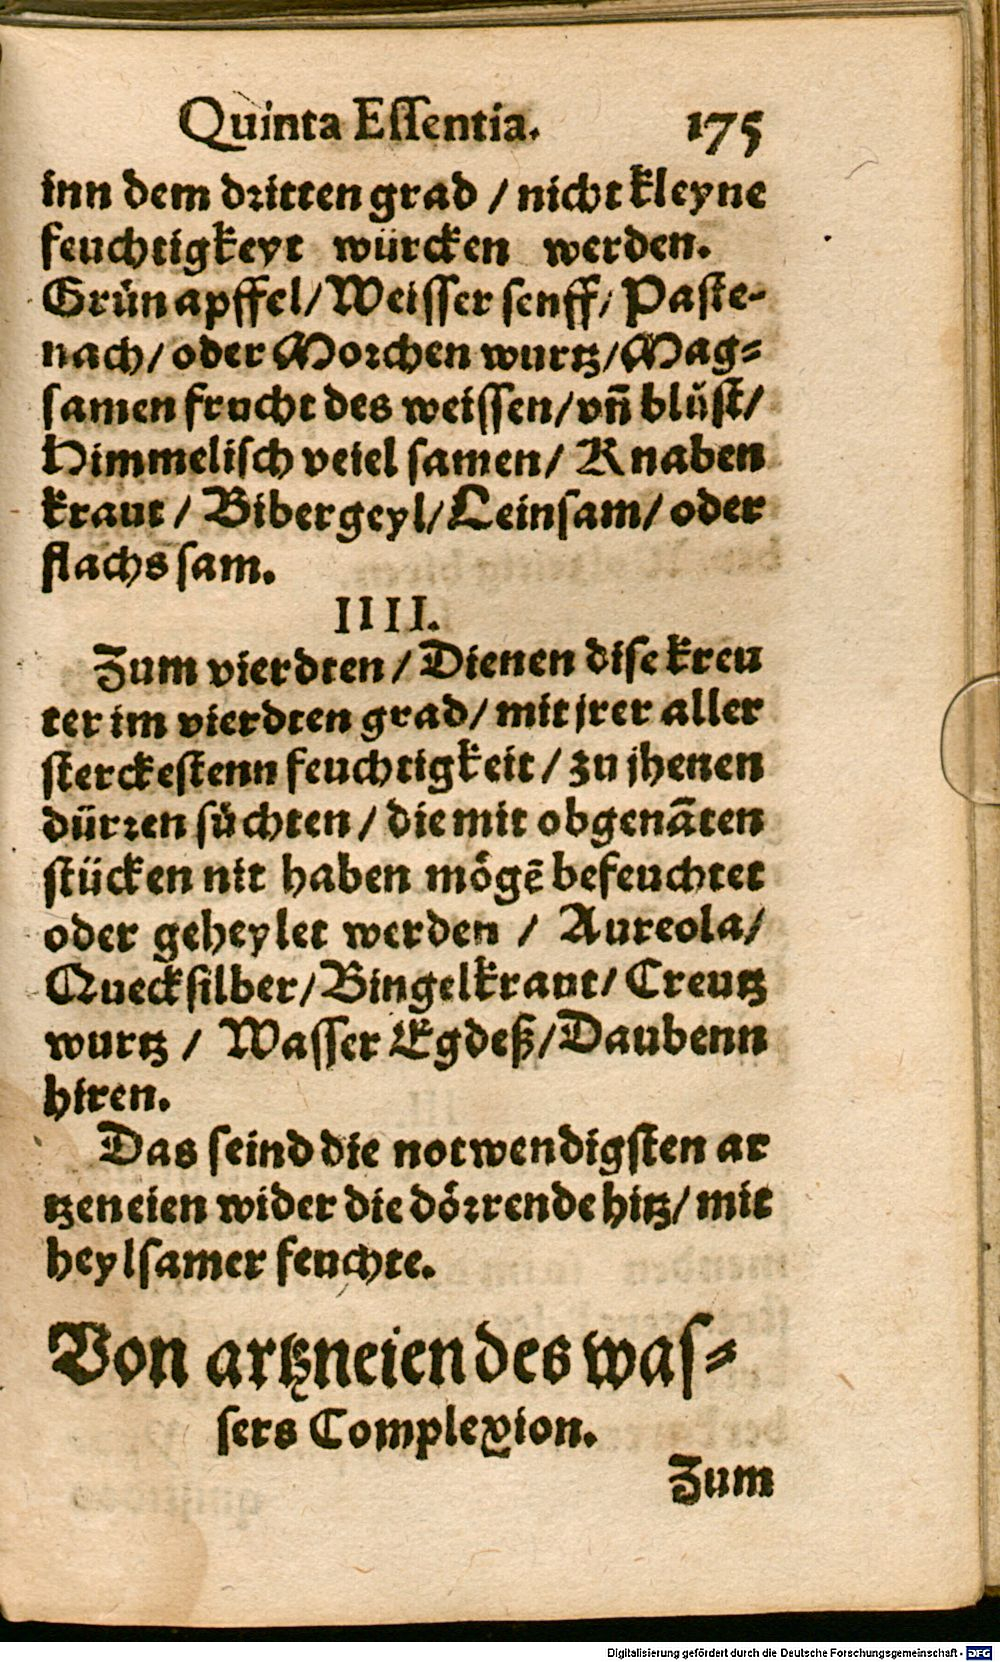 Quinta Essentia. 175
inn dem dritten grad / nicht kleyne
feuchtigkeyt würcken werden.
Grün apffel / Weisser senff / Paste-
nach / oder Morchen wurtz / Mag-
samen frucht des weissen / vñ blůst /
Himmelisch veiel samen / Knaben
kraut / Bibergeyl / Leinsam / oder
flachs sam.
IIII.
Zum vierdten / Dienen dise kreu
ter im vierdten grad / mit jrer aller
sterckestenn feuchtigkeit / zu jhenen
dürren sůchten / die mit obgenãten
stücken nit haben mögẽ befeuchtet
oder geheylet werden / Aureola /
Quecksilber / Bingelkraut / Creutz
wurtz / Wasser Egdeß / Daubenn
hiren.
Das seind die notwendigsten ar
tzeneien wider die dörrende hitz / mit
heylsamer feuchte.
Von artzneien des was-
sers Complexion.
Zum
Digitalisierung gefördert durch die Deutsche Forschungsgemeinschaft - DFG